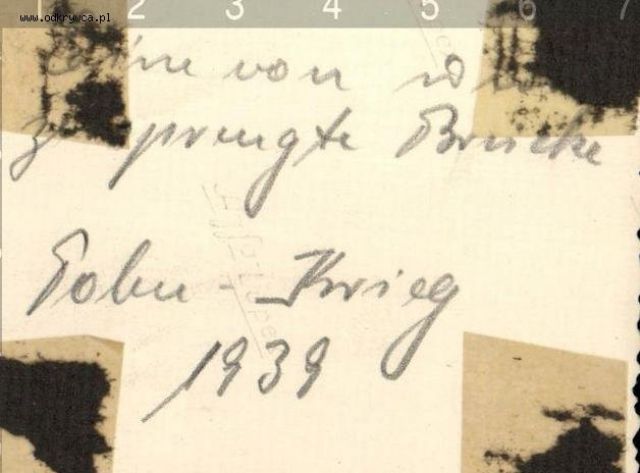 www.odkrywca.pl
2 3 4 5 6 7
eine von
sprengte Brücke
Polen - Krieg
1939